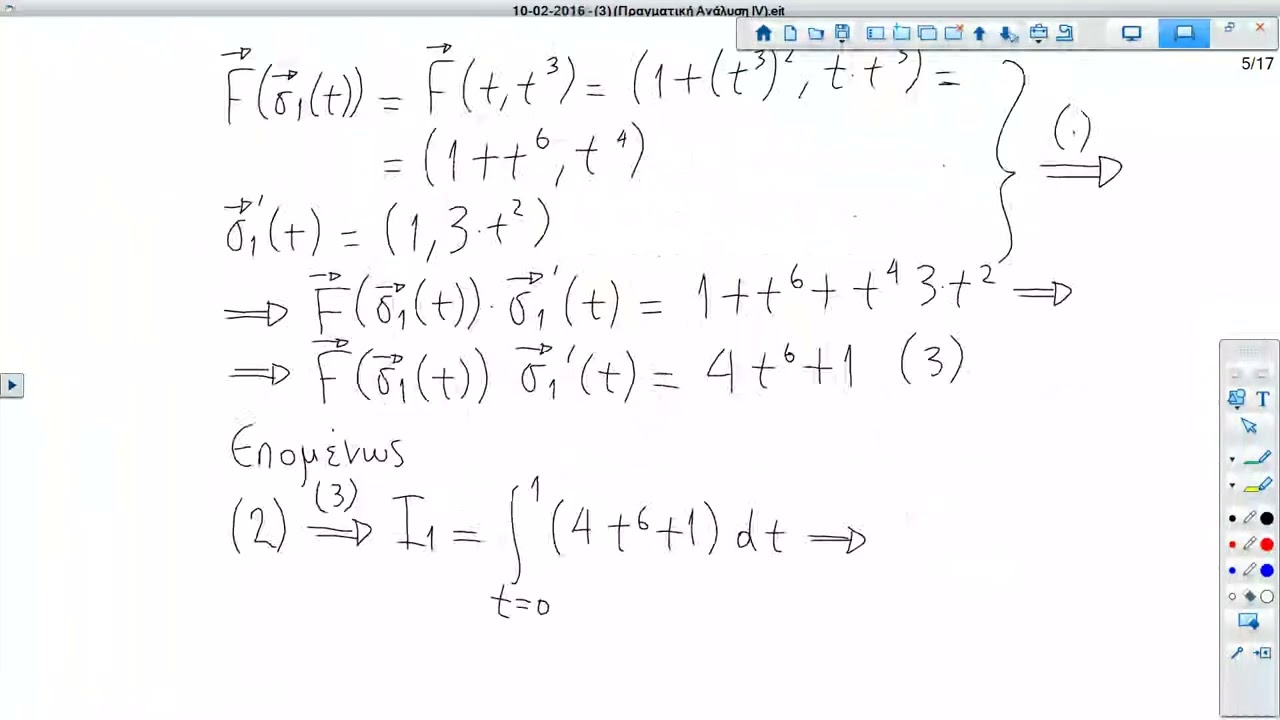 10-02-2016 - (3) (Πραγματική Ανάλυση IV).ejt
5/17
F⃗(σ⃗₁(t)) = F⃗(t, t³) = (1+(t³)², t·t³) =
= (1+t⁶, t⁴)
(·) ⟹
σ⃗₁'(t) = (1, 3·t²)
⟹ F⃗(σ⃗₁(t)) · σ⃗₁'(t) = 1+t⁶+t⁴3·t² ⟹
⟹ F⃗(σ⃗₁(t)) σ⃗₁'(t) = 4t⁶+1 (3)
Επομένως
(2) (3)⟹ I₁ = ∫_{t=0}^{1} (4t⁶+1) dt ⟹
T